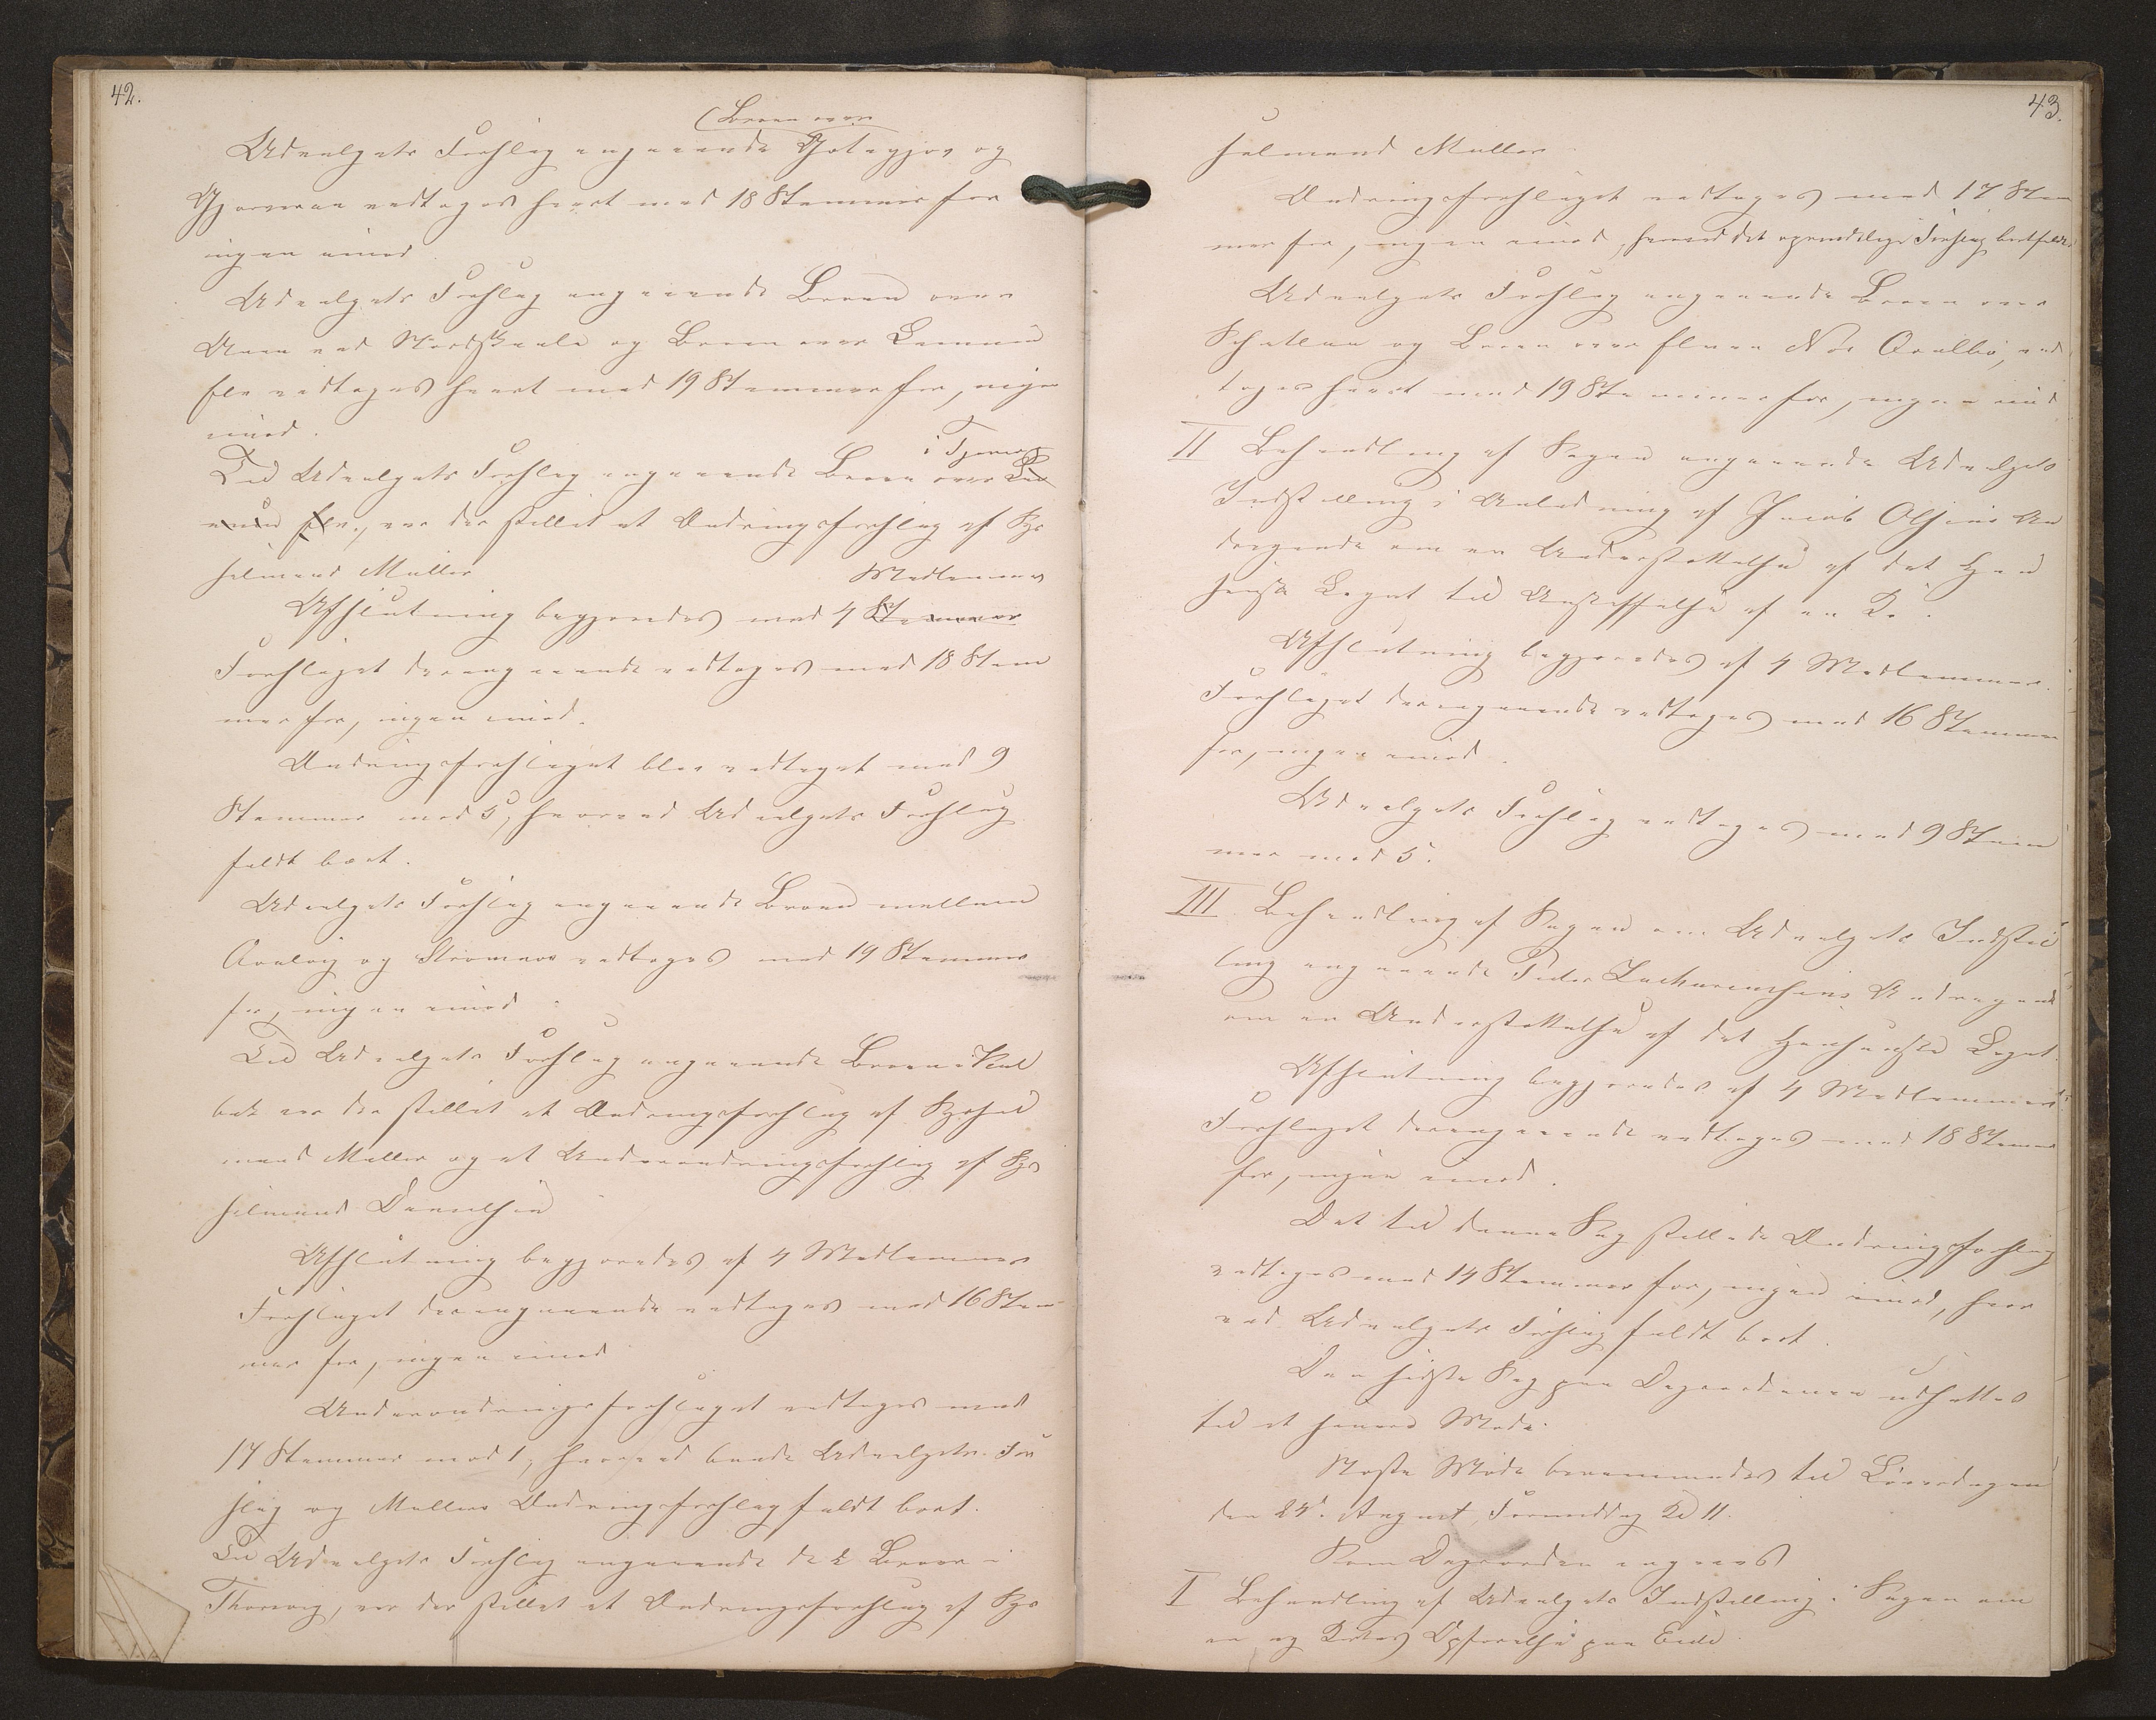 42.
(Broen over
Udvalgets Forslag angaaende Gotegjov og
Gjorveraa vedtoges hvert med 18 Stemmer for
ingen imod
Udvalgets Forslag angaaende Broen over
Aaen ved Nordskaale og Broen over
vedtoges hvert med 19 Stemmer for, ingen
imod.
i Tjørnevig
Til Udvalgets Forslag angaaende Broen over
var der stillet et Ændringsforslag af Sys
selmand Müller
Medlemmer
Afslutning begjæredes med 4 Stemmer
Forslaget derangaaende vedtoges med 18 Stem
mer for, ingen imod.
Ændringsforslaget blev vedtaget med 9
Stemmer mod 5, hvorved Udvalgets Forslag
faldt bort.
Udvalgets Forslag angaaende Broen mellem
Qvalvig og Strømnæs vedtoges med 19 Stemmer
for, ingen imod.
Til Udvalgets Forslag angaaende Broen i Kal
bak var der stillet et Ændringsforslag af Syssel
mand Müller og et Underændringsforslag af Sys
selmand Danielsen
Afslutning begjæredes af 4 Medlemmer
Forslaget derangaaende vedtoges med 16 Stem
mer for, ingen imod
Underændringsforslaget vedtoges med
17 Stemmer mod 1, hvorved baade Udvalgets For
slag og Müllers Ændringsforslag faldt bort.
Til Udvalgets Forslag angaaende de 2 Broer i
Thorsvig, var der stillet et Ændringsforslag af Sys
43.
selmand Müller.
Ændringsforslaget vedtoges med 17 Stem
mer for, ingen imod, hvorved det oprindelige Forslag bortfaldt.
Udvalgets Forslag angaaende Broen over
og Broen over Elven Nør Qvalbø, ved
toges hvert med 19 Stemmer for, ingen imod
II Behandling af Sagen angaaende Udvalgets
Indstilling i Anledning af Jacob Olsens An
dragende om en Understøttelse af det Hen
seiske Legat til Anskaffelse af en Ko.
Afslutning begjæredes af 4 Medlemmer.
Forslaget derangaaende vedtoges med 16 Stemmer
for, ingen imod.
Udvalgets Forslag vedtoges med 9 Stem
mer mod 5.
III Behandling af Sagen om Udvalgets Indstil
ling angaaende Peder Zachariasens Andragende
om en Understøttelse af det Legat.
Afslutning begjæredes af 4 Medlemmer
Forslaget derangaaende vedtoges med 18 Stemmer
for, ingen imod.
Det til denne Sag stillede Ændringsforslag
vedtoges med 14 Stemmer for, ingen imod, hvor
ved Udvalgets Forslag faldt bort.
Den sidste Sag paa Dagsordenen udsattes
til et senere Møde.
Næste Møde berammedes til Løverdagen
den 24de August, Formiddag Kl 11.
Som Dagsorden angaves
I Behandling af Udvalgets Indstilling i Sagen om
en ny Opførelse paa Eide